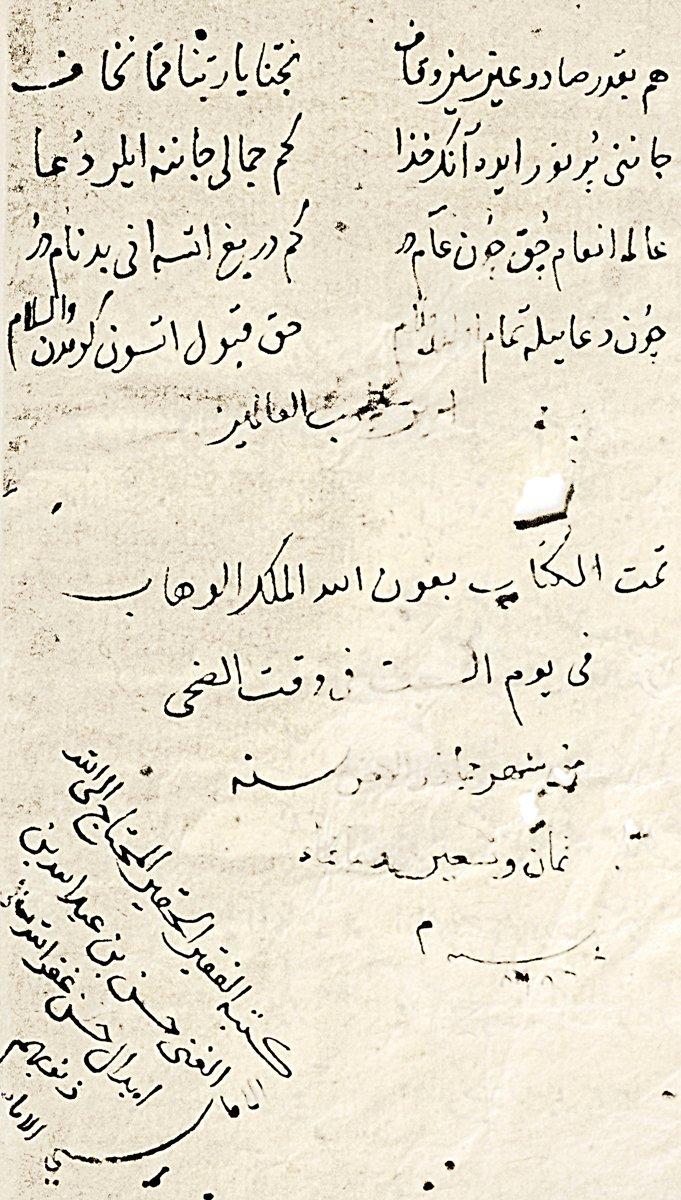 هم بقدر صاد و عين سين و قاف نجنا يا ربنا مما نخاف
جاننى پر نور ايده آنك خدا كم جمالى جاننه ايلر دعا
عالمه انعام چون عام در كم دريغ اتسه انى بدنام در
چون دعا ييله تمام حق قبول اتسون كرمدن والسلام
رب العالمين
تمت الكتاب بعون الله الملك الوهاب
فى يوم السبت فى وقت الضحى
من شهر سنه
ثمان و تسعين
م
كتبه الفقير الحقير المحتاج الى الله
الغنى حسن بن عبد الله بن
ابدال حسن غفر الله
ذنوبهم